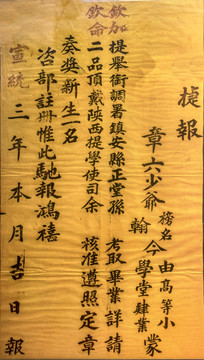 捷報
章六少爺榜名翰今由高等小學堂肄業蒙
欽加提舉銜調署鎮安縣正堂孫考取畢業詳請
欽命二品頂戴陝西提學使司余核准遵照定章
奏奬新生一名
咨部註冊惟此馳報鴻禧
宣統三年本月吉日報